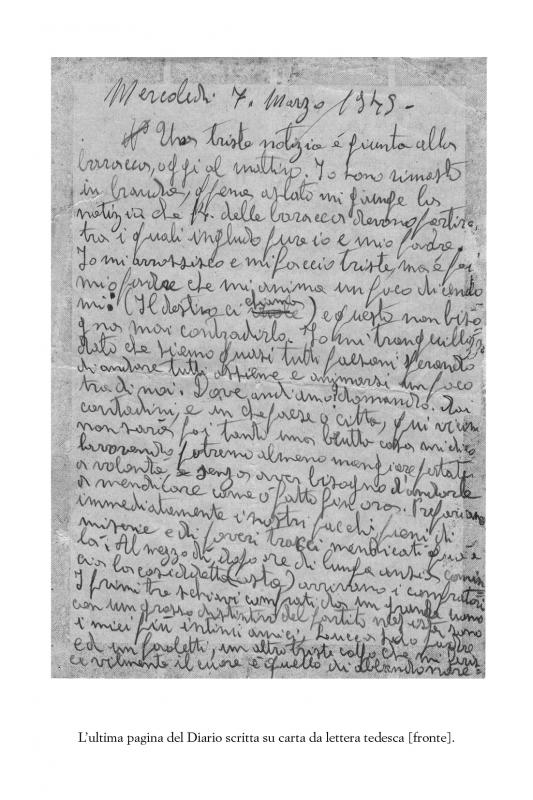 Mercoledi. 7. Marzo 1945 -
Una triste notizia é giunta alla
baracca, oggi al mattino. Io sono rimasto
in branda, appena alzato mi giunge la
notizia che delle baracca devono partire,
tra i quali includo pure io e mio padre.
Io mi arrossisco e mi faccio triste, ma é poi
mio padre che mi anima un poco dicendo
mi: (Il destino ci chiama) e questo non biso
gna mai contradirlo. Io mi tranquillizzo
dato che siamo quasi tutti paesani sperando
di andare tutti assieme e animarsi un poco
tra di noi. Dove andiamo domando. dai
contadini, e in che paese o citta, qui vicin
non sarà poi tanto una brutta cosa mi dico
lavorando potremo almeno mangiare patate
a volonta e senza aver bisogno d'andarle
a mendicare come ò fatto fin ora. Prepariamo
immediatamente i nostri pacchi pieni di
miserie e di poveri stracci mendicati quà e
là; Al mezzo dì dopo ore di lunga ansia, comin
cia la cosidetta (asta) arrivano i compratori
I primi tre schiavi comprati da un grande uomo
con un grosso distintivo del partito nazista sono
i miei più intimi amici, Lucca Italo padre
ed un Paoletti, un altro triste colpo che mi
civilmente il cuore é quello di abbandonare
L'ultima pagina del Diario scritta su carta da lettera tedesca [fronte].